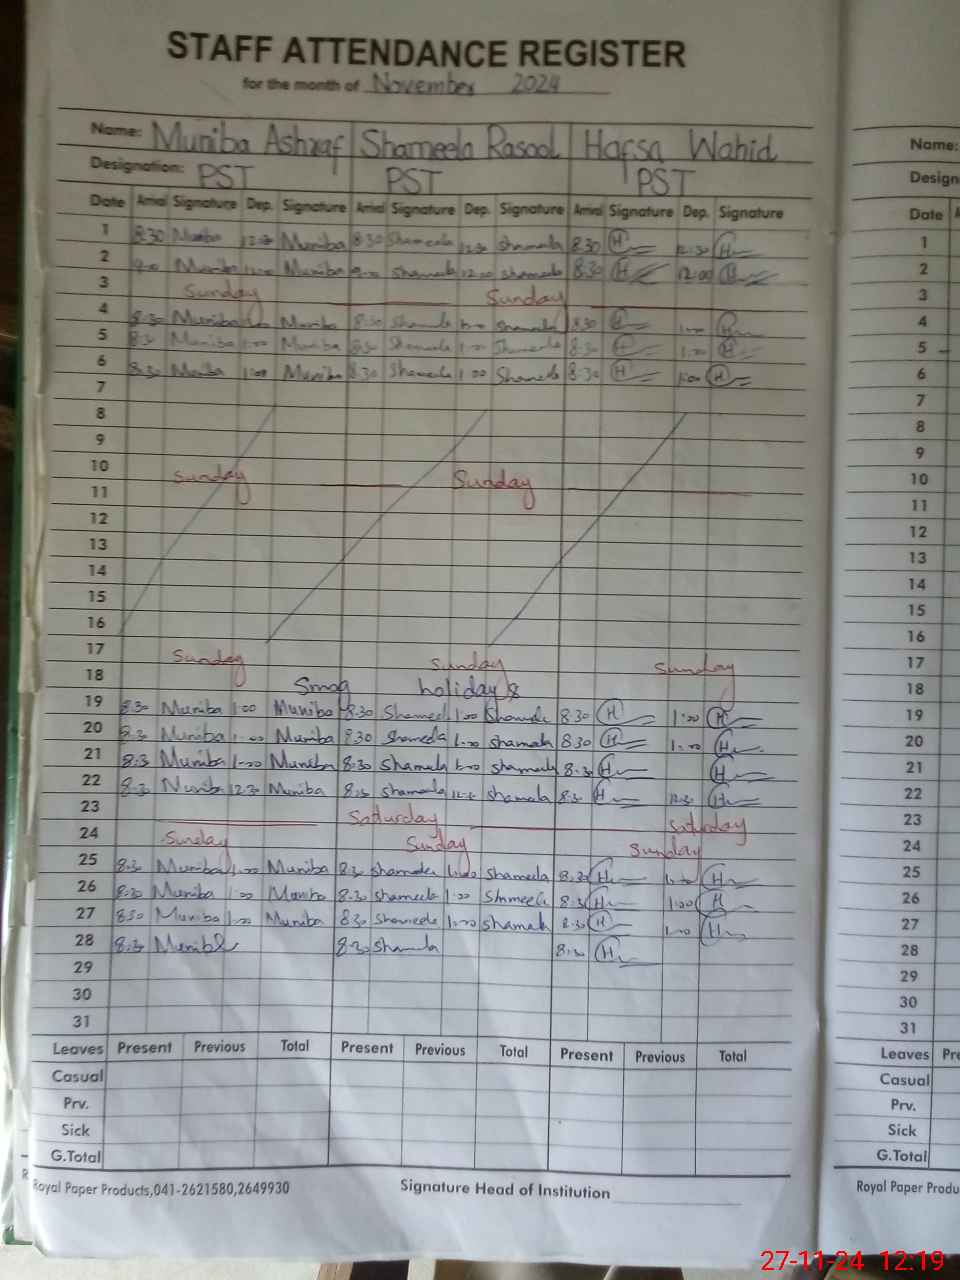 STAFF ATTENDANCE REGISTER
for the month of November 2024
Name: Muniba Ashraf Shameela Rasool Hafsa Wahid
Designation: PST PST PST
Date Arrival Signature Dep. Signature Arrival Signature Dep. Signature Arrival Signature Dep. Signature
1 8:30 Muniba 12:30 Muniba 8:30 Shameela 12:30 Shameela 8:30 H 12:30 H
2 9:00 Muniba 12:00 Muniba 9:00 Shameela 12:00 Shameela 8:30 H 12:00 H
3 Sunday Sunday
4 8:30 Muniba Muniba 8:30 Shameela Shameela 8:30 H 1:00 H
5 8:30 Muniba 1:00 Muniba 8:30 Shameela 1:00 Shameela 8:30 H 1:00 H
6 8:30 Muniba 1:00 Muniba 8:30 Shameela 1:00 Shameela 8:30 H 1:00 H
7
8
9
10 Sunday Sunday
11
12
13
14
15
16
17 Sunday Sunday Sunday
18 Smog holidays
19 8:30 Muniba 1:00 Muniba 8:30 Shameela 1:00 Shameela 8:30 H 1:00 H
20 8:30 Muniba 1:00 Muniba 8:30 Shameela 1:00 Shameela 8:30 H 1:00 H
21 8:30 Muniba 1:00 Muniba 8:30 Shameela 1:00 Shameela 8:30 H H
22 8:30 Muniba 12:30 Muniba 8:30 Shameela Shameela 8:30 H 12:30 H
23 Saturday Saturday
24 Sunday Sunday Sunday
25 8:30 Muniba 1:00 Muniba 8:30 Shameela 1:00 Shameela 8:30 H 1:00 H
26 8:30 Muniba 1:00 Muniba 8:30 Shameela 1:00 Shameela 8:30 H 1:00 H
27 8:30 Muniba 1:00 Muniba 8:30 Shameela 1:00 Shameela 8:30 H 1:00 H
28 8:30 Muniba 8:30 Shameela 8:30 H
29
30
31
Leaves Present Previous Total Present Previous Total Present Previous Total
Casual
Prv.
Sick
G.Total
Royal Paper Products,041-2621580,2649930 Signature Head of Institution
Name:
Date
1
2
3
4
5
6
7
8
9
10
11
12
13
14
15
16
17
18
19
20
21
22
23
24
25
26
27
28
29
30
31
Leaves
Casual
Prv.
Sick
G.Total
Royal Paper
27-11-24 12:19